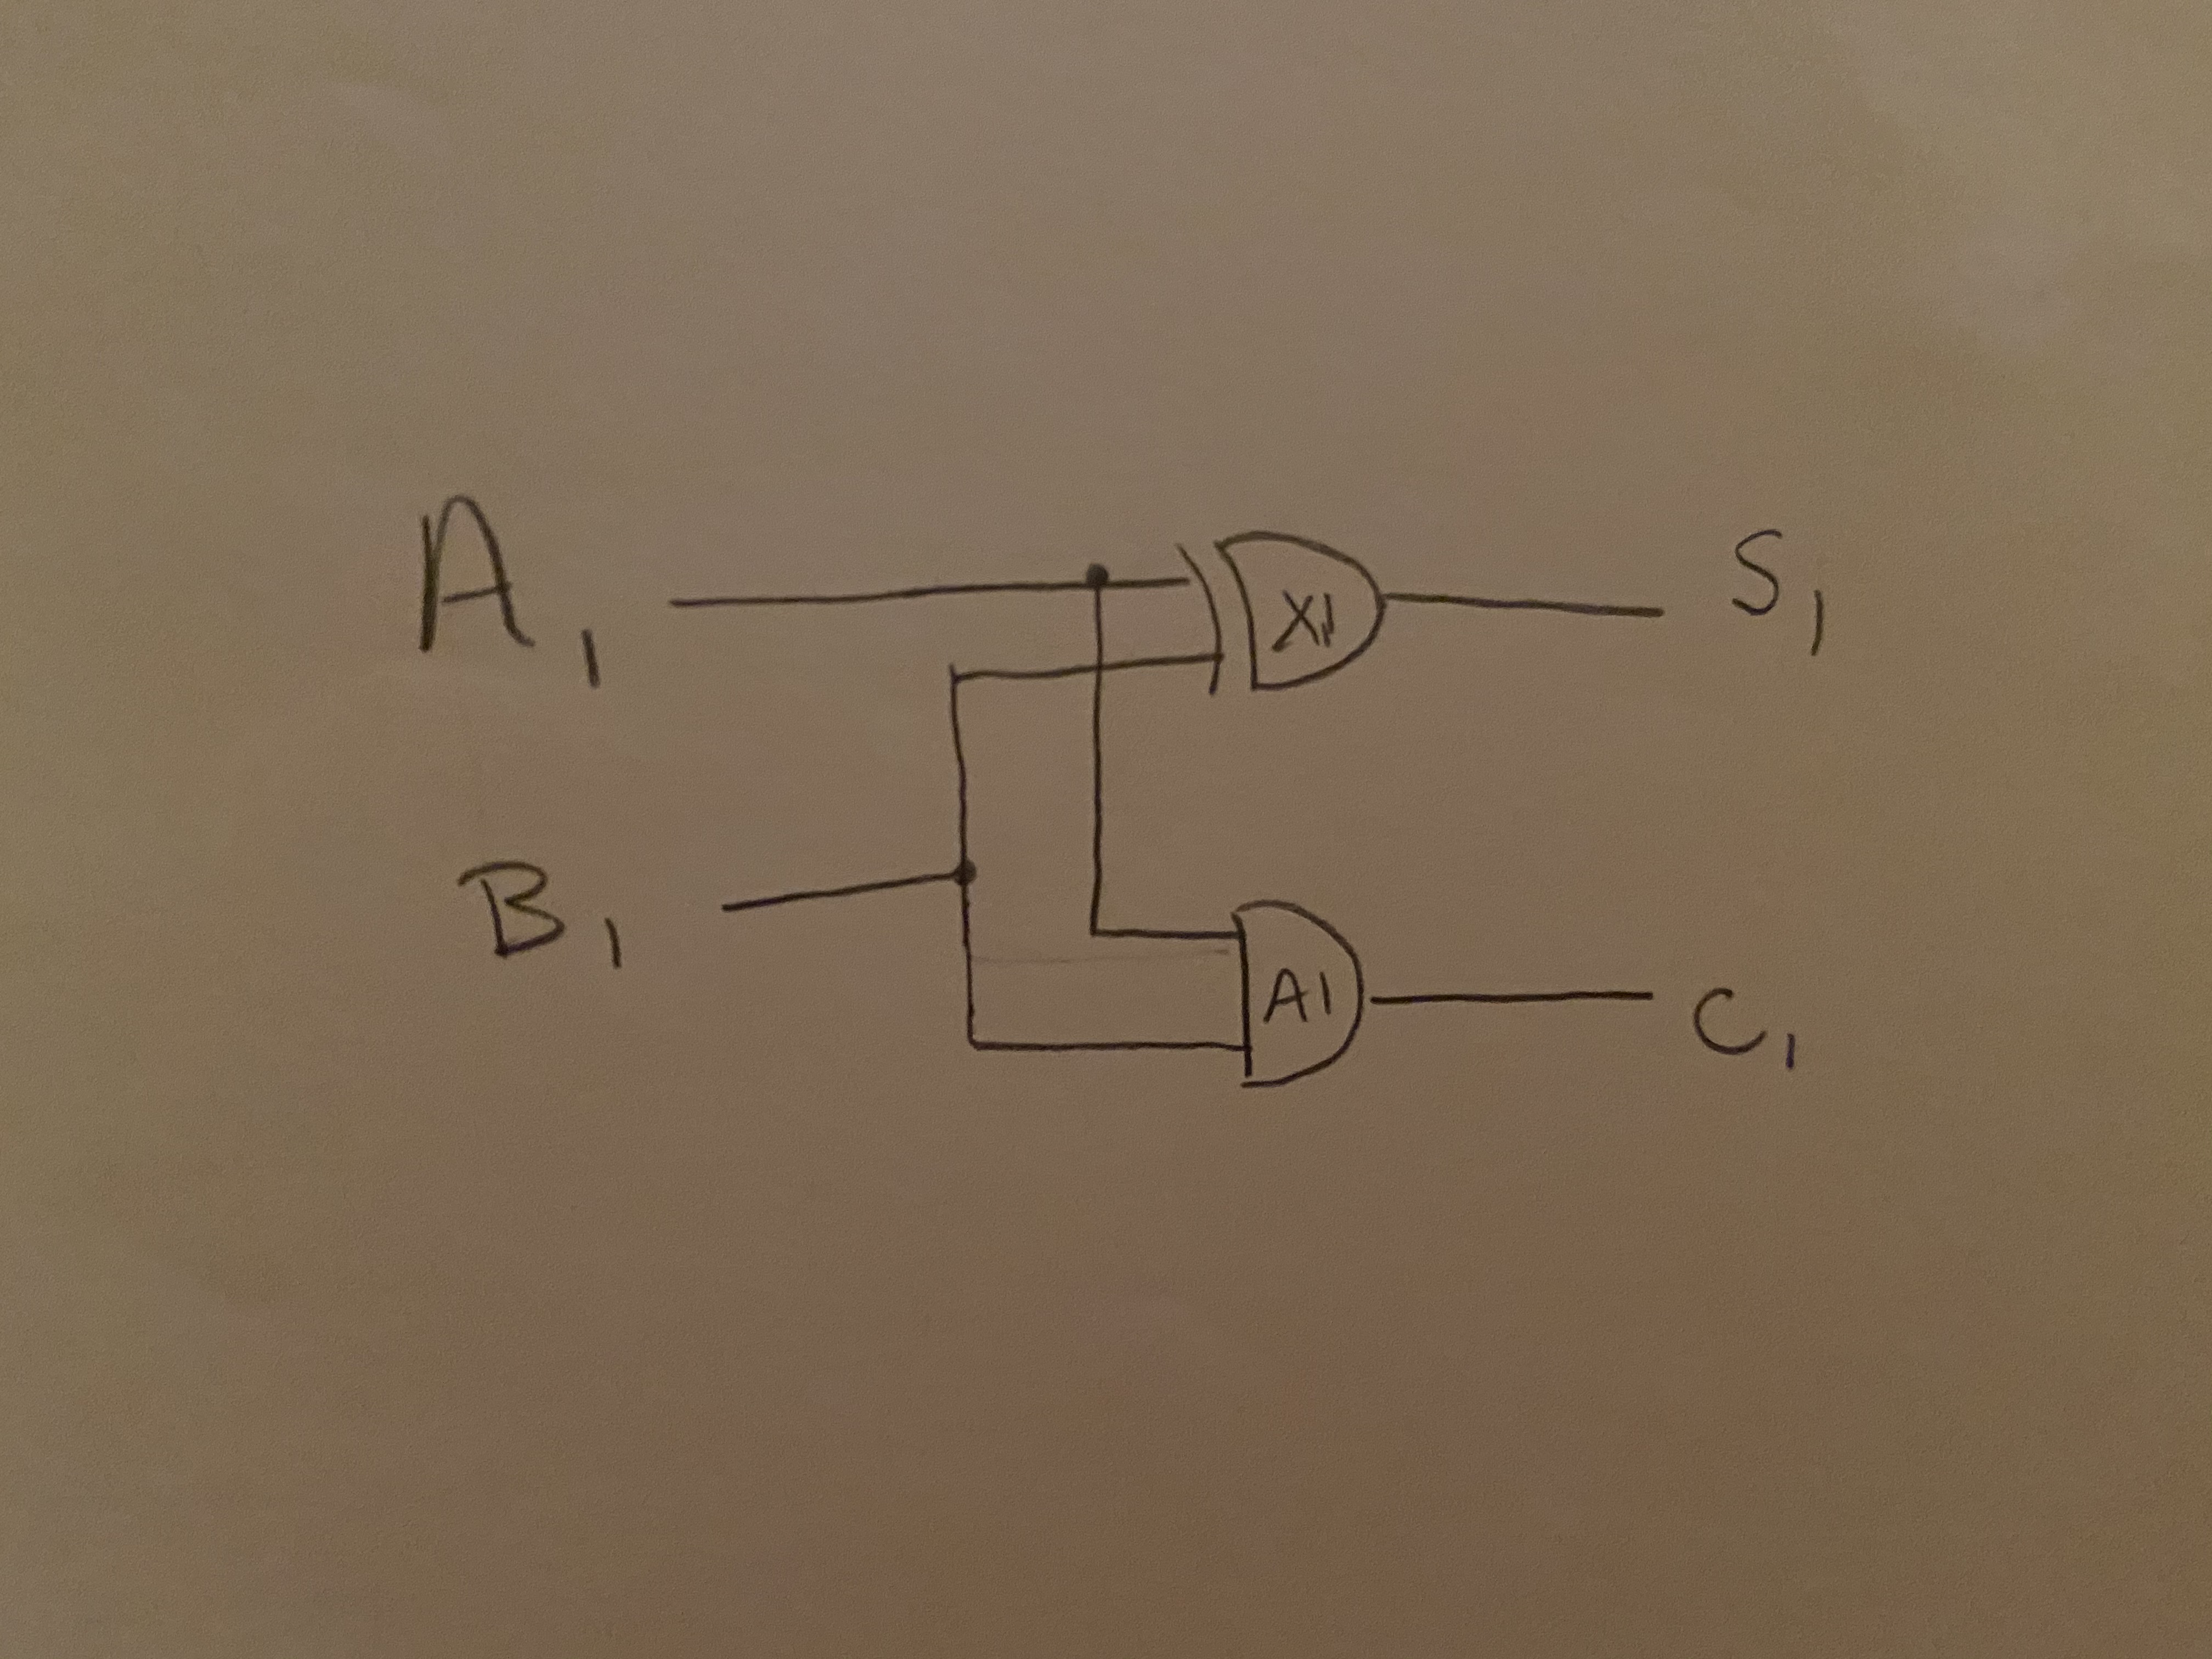 A₁
X1
S₁
B₁
A1
C₁